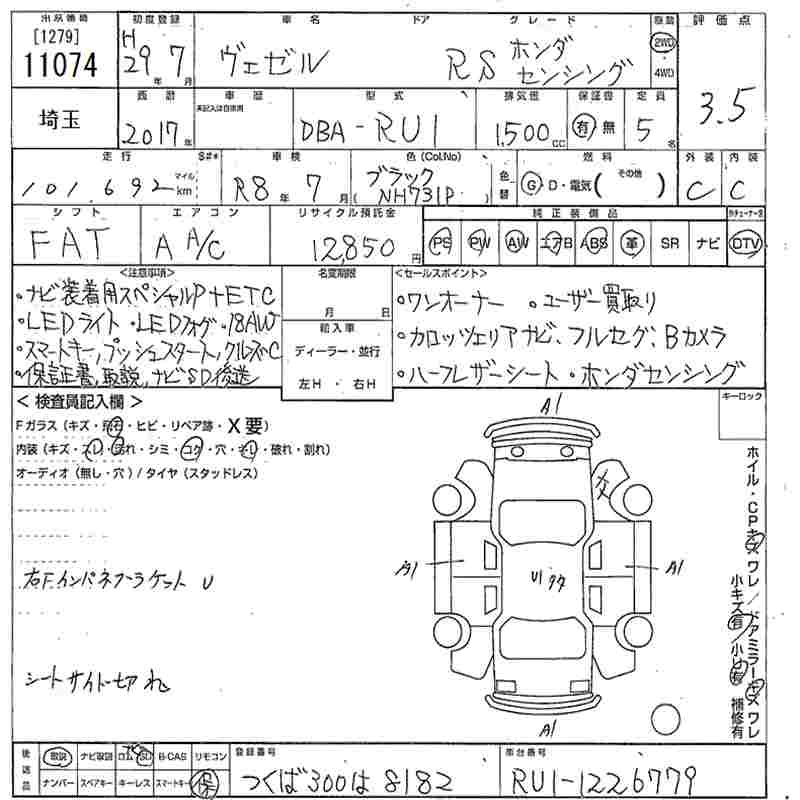 出品番号 初度登録 車名 ドア グレード 駆動 評価点
[1279]
11074 H29年7月 ヴェゼル RS ホンダセンシング 2WD 4WD 3.5
埼玉 西暦 車歴 型式 排気量 保証書 定員
2017年 未記入は自家用 DBA-RU1 1,500cc 有 無 5名
走行 S#* 車検 色(Col.No) 色替 燃料 外装 内装
101,692 マイル km R8年7月 ブラック (NH731P) G・D・電気(その他) C C
シフト エアコン リサイクル預託金 純正装備品
FAT AA/C 12,850円 PS PW AW エアB ABS 革 SR ナビ DTV
<注意事項>
・ナビ装着用スペシャルP+ETC
・LEDライト・LEDフォグ・18AW
・スマートキー,プッシュスタート,クルーズC
・保証書,取説,ナビSD後送
名変期限
月 日
輸入車
ディーラー・並行
左H・右H
<セールスポイント>
・ワンオーナー ・ユーザー買取り
・カロッツェリアナビ、フルセグ、Bカメラ
・ハーフレザーシート・ホンダセンシング
<検査員記入欄> キーロック
Fガラス(キズ・飛石・ヒビ・リペア跡・X要)
内装(キズ・スレ・汚れ・シミ・コゲ・穴・キレ・破れ・割れ)
オーディオ(無し・穴)/タイヤ(スタッドレス)
右Fインパネブラケット U
シートサイド切れ
A1
A1
U1
A1
A1
ホイル・CPキズ ワレ/ドアミラーキズ ワレ
小キズ有/小凹有 補修有
後送品 取説 ナビ取説 ナビSD B-CAS リモコン
ナンバー スペアキー キーレス スマートキー 保
登録番号 つくば300は8182
車台番号 RU1-1226779